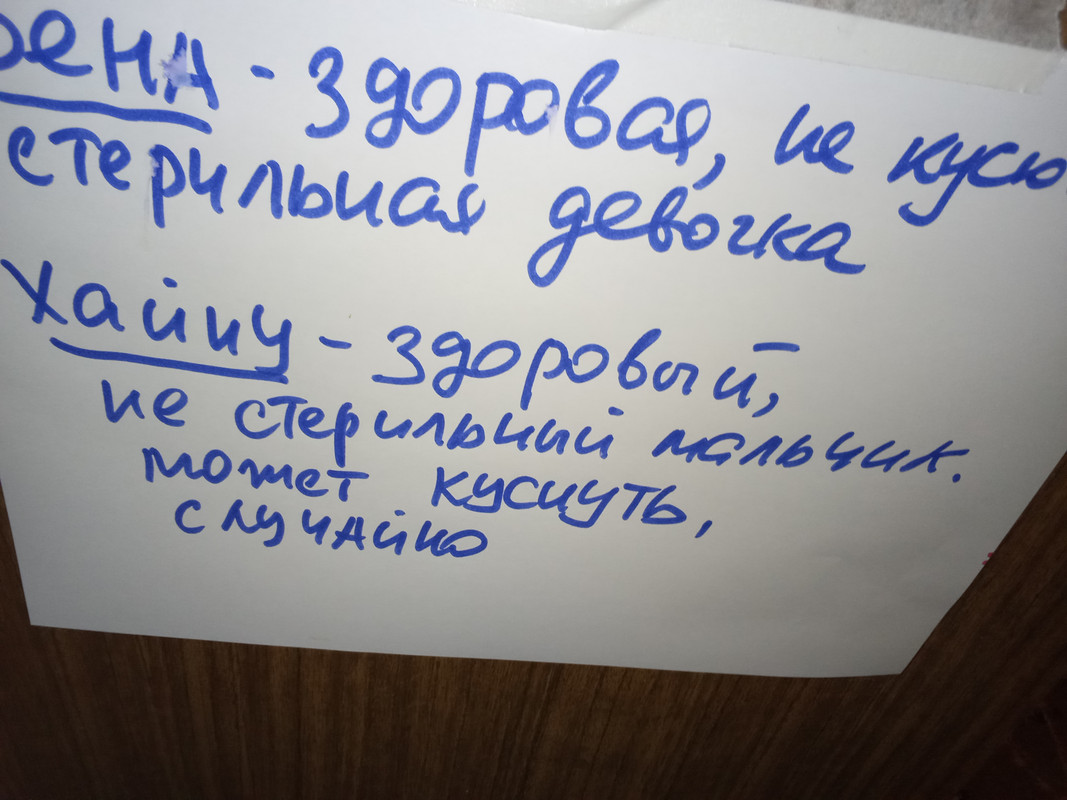 - здоровая, не
стерильная девочка
Хайну - здоровый,
не стерильный мальчик.
может куснуть,
случайно